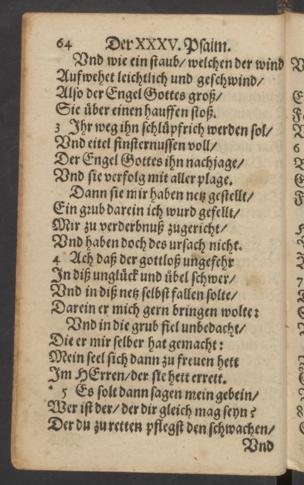 64 Der XXXV. Psalm.
Vnd wie ein staub/ welchen der wind
Aufwehet leichtlich vnd geschwind/
Also der Engel Gottes groß/
Sie über einen hauffen stoß.
3 Ihr weg ihn schlüpfrich werden sol/
Vnd eitel finsternussen voll/
Der Engel Gottes ihn nachjage/
Vnd sie verfolg mit aller plage.
Dann sie mir haben netz gestellt/
Ein grub darein ich wurd gefellt/
Mir zu verderbnuß zugericht/
Vnd haben doch des ursach nicht.
4 Ach daß der gottloß ungefehr
In diß unglück und übel schwer/
Vnd in diß netz selbst fallen solte/
Darein er mich gern bringen wolte:
Vnd in die grub fiel unbedacht/
Die er mir selber hat gemacht:
Mein seel sich dann zu freuen hett
Im HErren/ der sie hett errett.
* 5 Es solt dann sagen mein gebein/
Wer ist der/ der dir gleich mag seyn?
Der du zu retten pflegst den schwachen/
Vnd